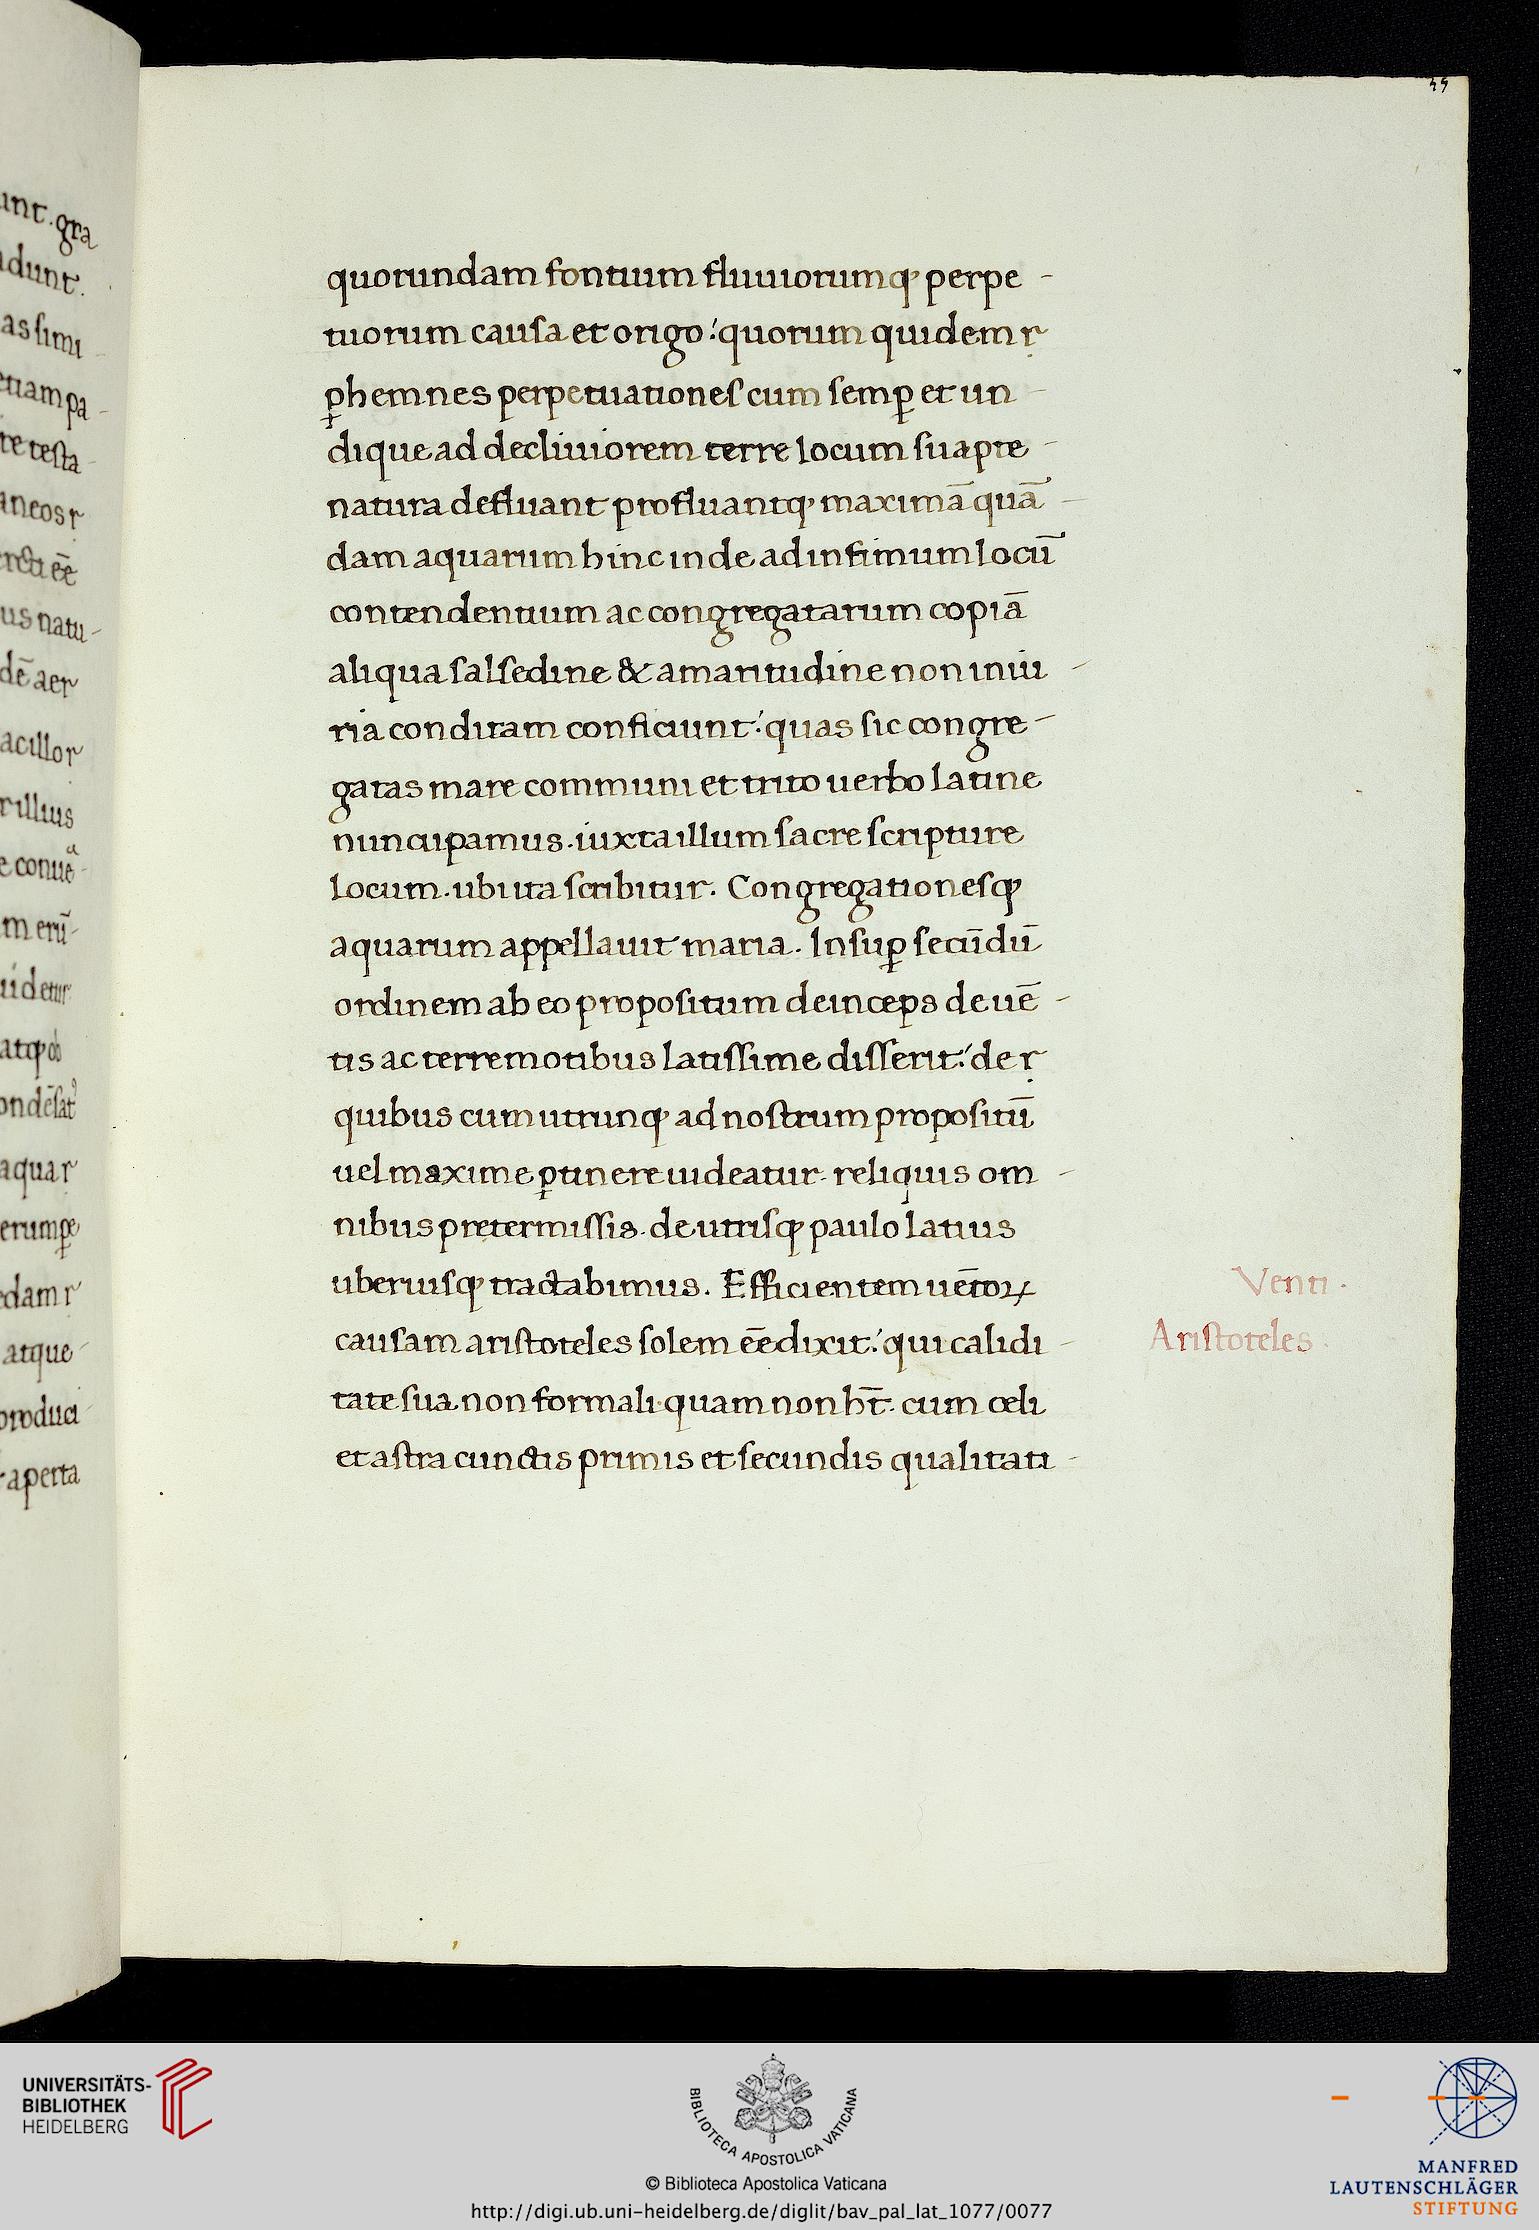 unt. gra
adunt.
as simi
etiam pa
te testa
aneos r
ectu eē
us natu-
dē aer
acillor
r illius
e conuē
m erū-
uidetur
atqꝫ ob
ondēsat
aquar
erumpe
edam r
atque
produci
aperta
39
quorundam fontium fluuiorumqꝫ perpe-
tuorum causa et origo: quorum quidem r
ꝑhemnes perpetuationes cum semꝑ et un-
dique ad decliuiorem terre locum suapte-
natura defluant profluantqꝫ maximā quā-
dam aquarum hinc inde ad infimum locū
contendentium ac congregatarum copiā
aliqua salsedine & amaritudine non iniu-
ria conditam conficiunt: quas sic congre-
gatas mare communi et trito uerbo latine
nuncupamus. iuxta illum sacre scripture
locum. ubi ita scribitur. Congregationesqꝫ
aquarum appellauit maria. Insuꝑ secūdū
ordinem ab eo propositum deinceps de uē-
tis ac terremotibus latissime disserit: de r
quibus cum utrunqꝫ ad nostrum propositū
uel maxime ꝑtinere uideatur. reliquis om-
nibus pretermissis. de utrisqꝫ paulo latius
uberiusqꝫ tractabimus. Efficientem uētoꝝ
causam aristoteles solem eē dixit: qui calidi-
tate sua non formali quam non hт̄. cum celi
et astra cunctis primis et secundis qualitati-
Venti.
Aristoteles.
UNIVERSITÄTS-
BIBLIOTHEK
HEIDELBERG
BIBLIOTECA APOSTOLICA VATICANA
© Biblioteca Apostolica Vaticana
http://digi.ub.uni-heidelberg.de/diglit/bav_pal_lat_1077/0077
MANFRED
LAUTENSCHLÄGER
STIFTUNG